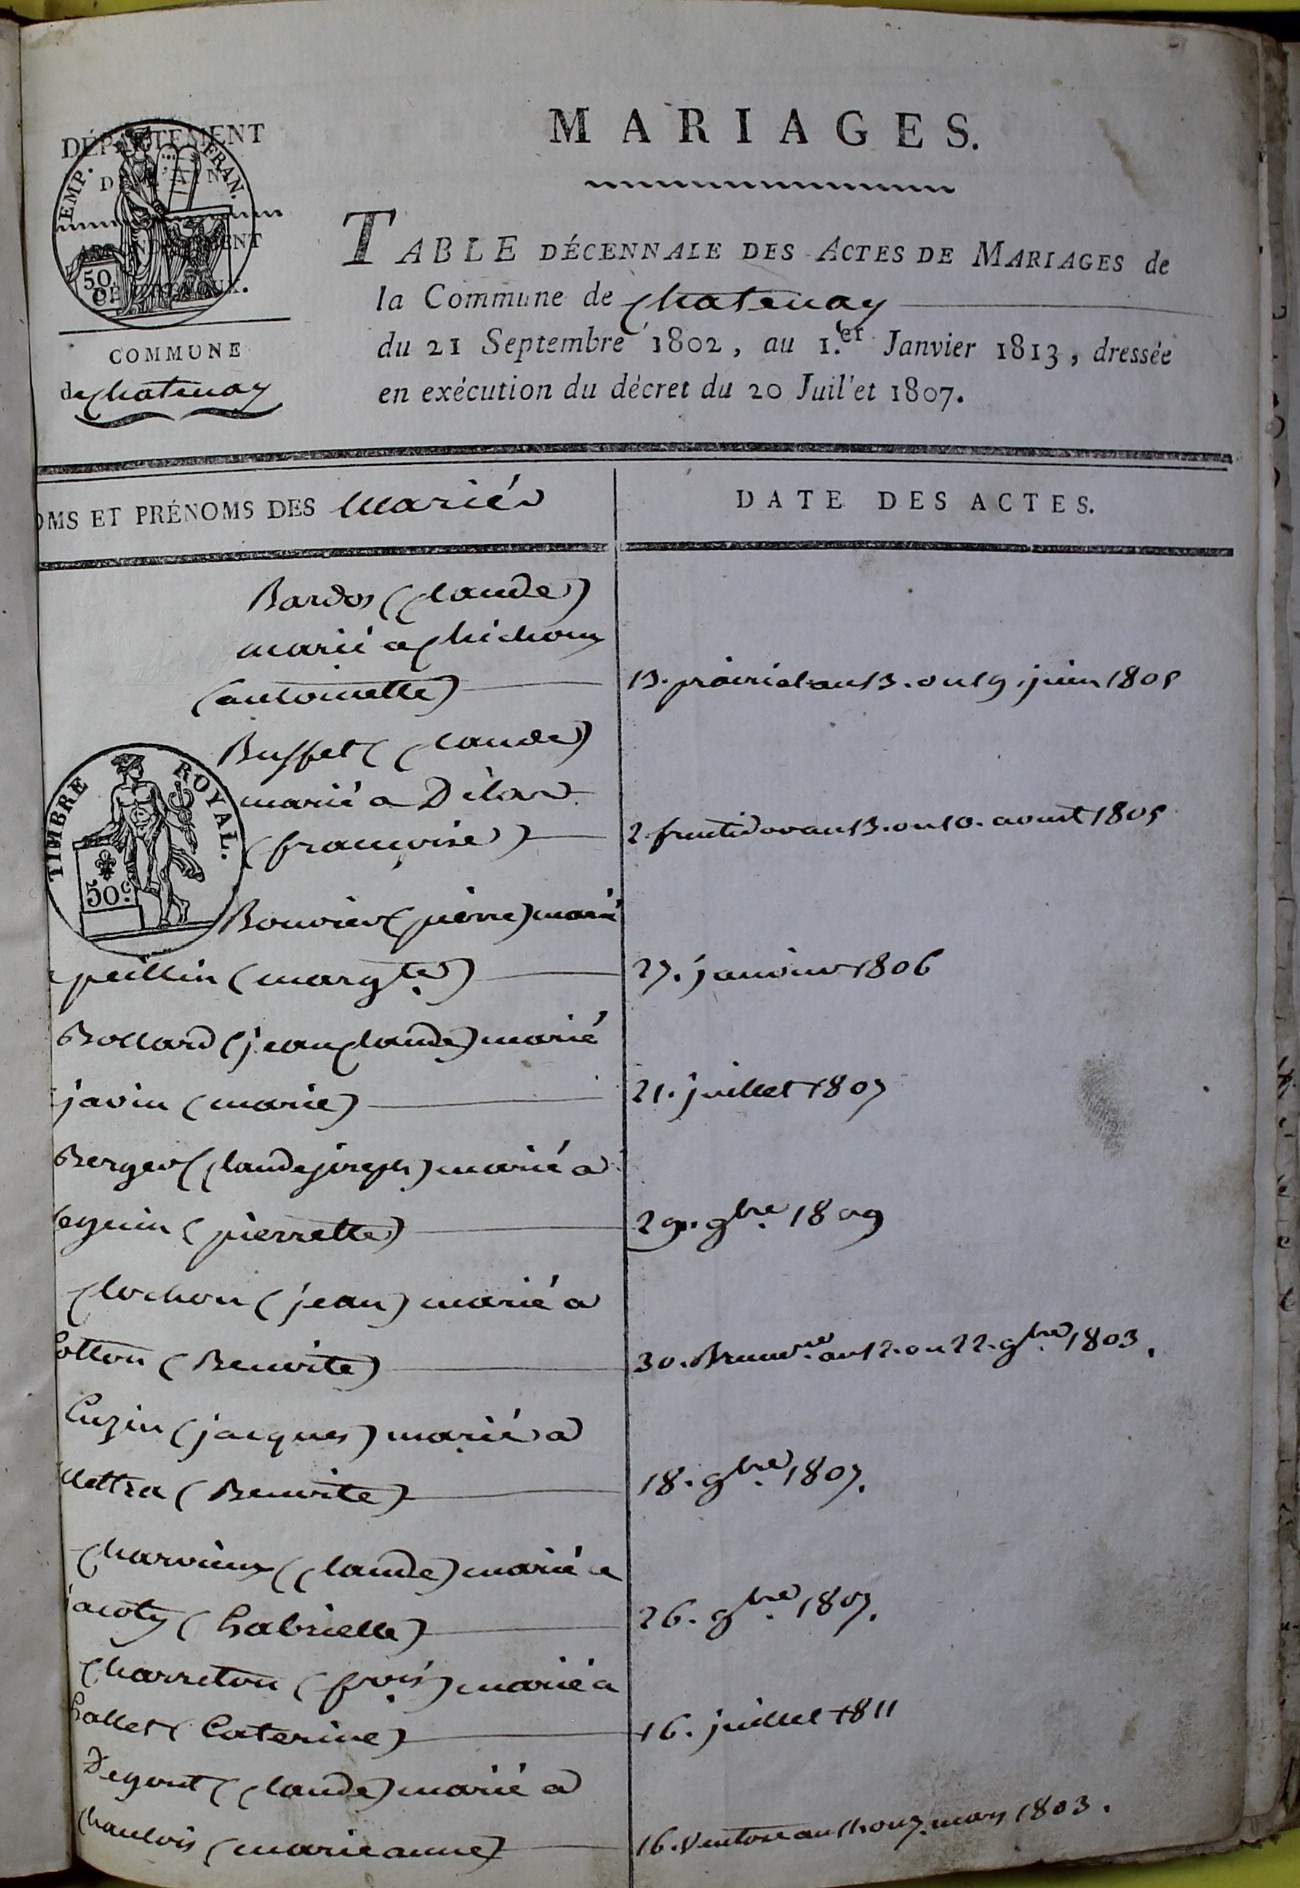 MARIAGES.
DÉPARTEMENT
DE L'AIN
ARRONDISSEMENT
DE TRÉVOUX.
EMP. FRAN.
50
COMMUNE
de chatenay
TABLE DÉCENNALE DES ACTES DE MARIAGES de
la Commune de chatenay
du 21 Septembre 1802, au 1.er Janvier 1813, dressée
en exécution du décret du 20 Juil'et 1807.
OMS ET PRÉNOMS DES mariés
DATE DES ACTES.
Bardos (claude)
marié a chichoux
(antoinette) 13. prairial an 13. ou 19. juin 1805
TIMBRE ROYAL.
50.c
Buffet (claude)
marié a
(françoise) 2 fructidor an 13. ou 10. aoust 1805
Bouvier (pierre) marié
peillin (margte) 27. janvier 1806
Bollard (jean claude) marié
javin (marie) 21. juillet 1807
Berger (claude joseph) marié a
eguin (pierrette) 29. 9bre 1809
clochon (jean) marié a
cotton (Benoite) 30. Brumre an 12. ou 22. 9bre 1803.
Cuzin (jacques) marié a
(Benoite) 18. 9bre 1807.
charvieux (claude) marié a
jacoty (Gabrielle) 26. 9bre 1807.
charreton (frois) marié a
Gallet (Caterine) 16. juillet 1811
Degout (claude) marié a
chanlois (marie anne) 16. Ventose an 11. ou 7. mars 1803.